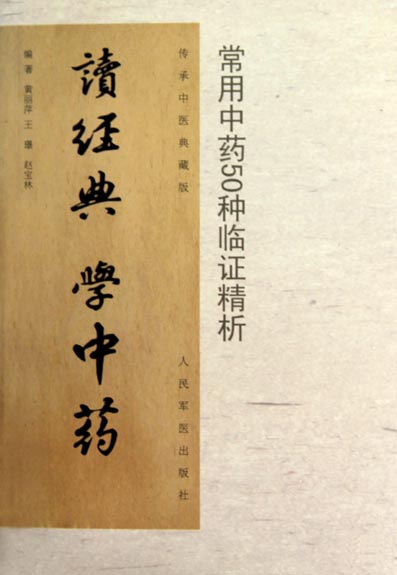 常用中药50种临证精析
传承中医典藏版
人民军医出版社
讀经典 學中药
编著 黄丽萍 王璟 赵宝林